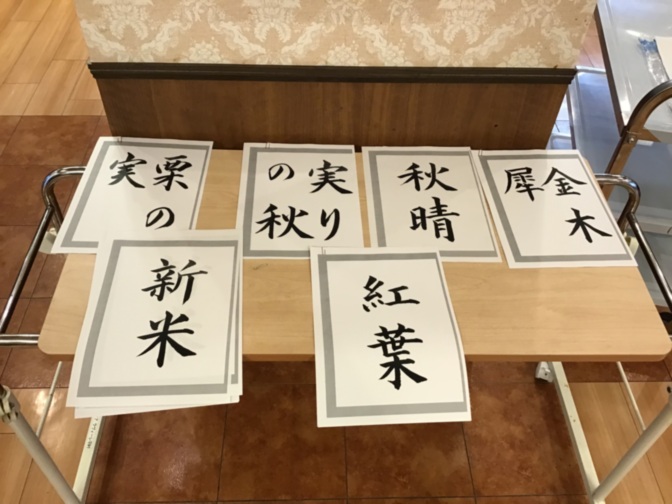 栗の
実
実り
の秋
秋晴
金木
犀
新米
紅葉